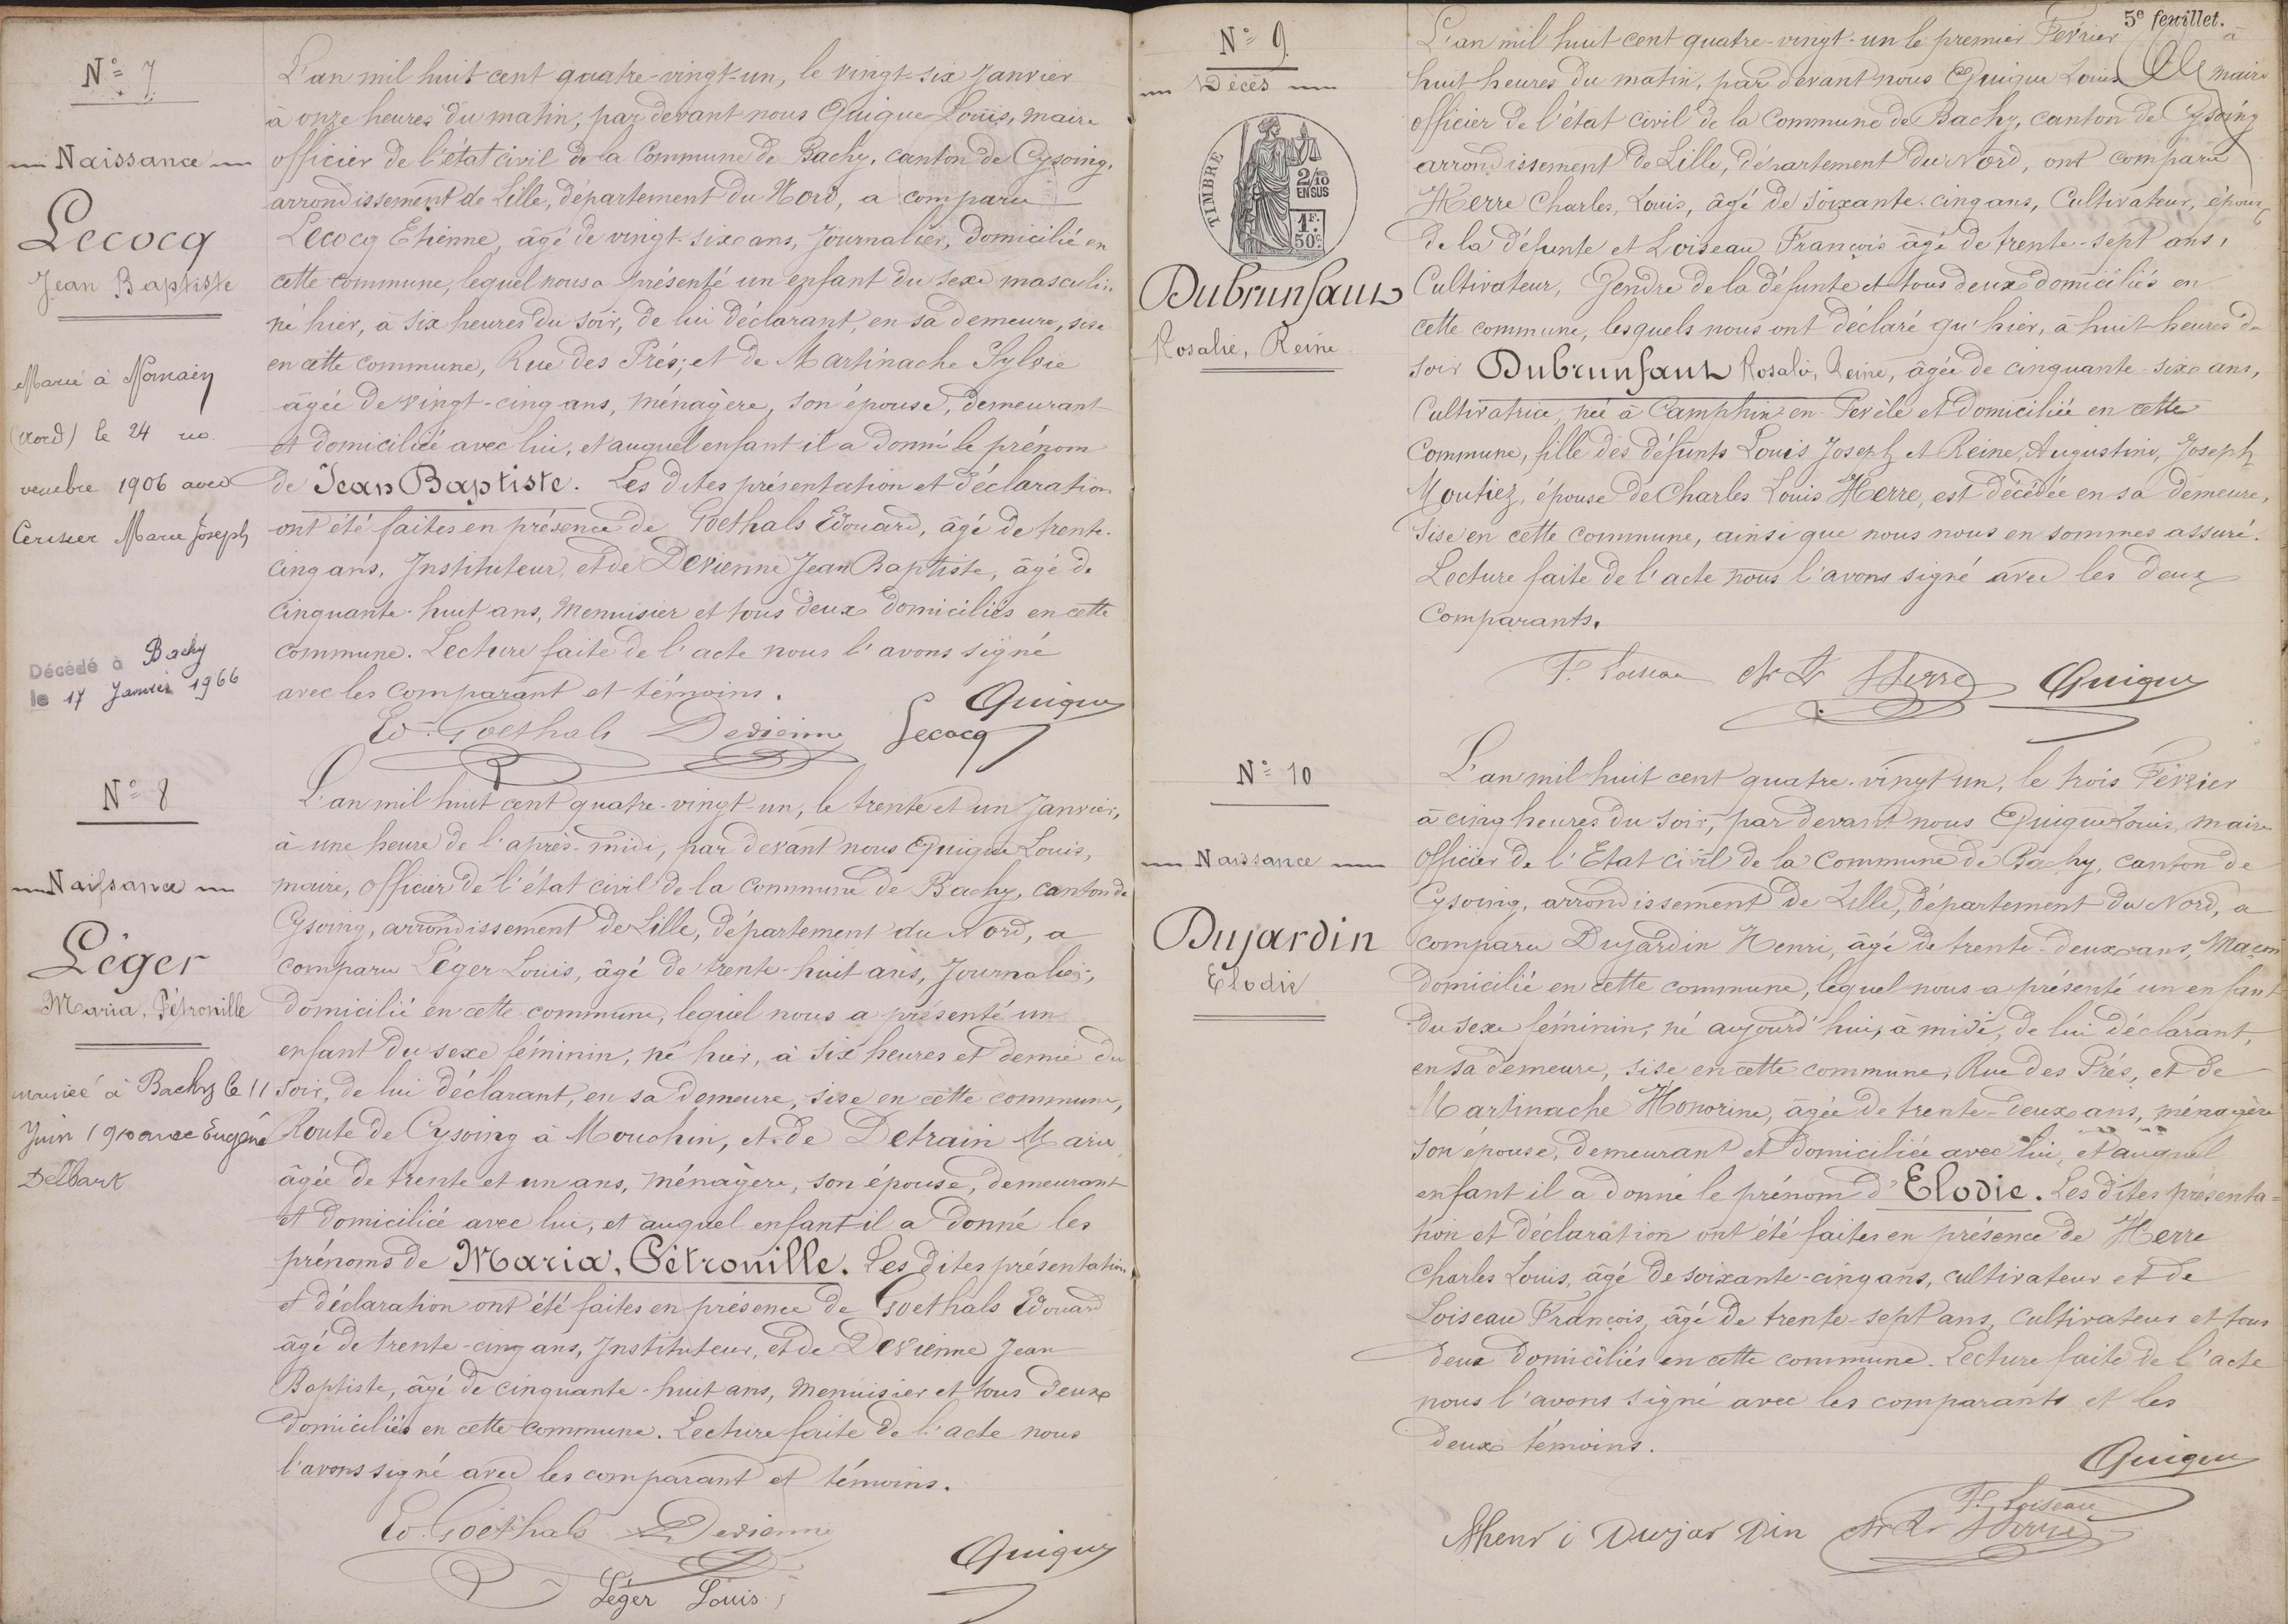 N° 7
Naissance
Lecocq
Jean Baptiste
Marié à Nomain
(Nord) le 24 no
vembre 1906 avec
Cerisier Marie Joseph
Décédé à Bachy
le 17 Janvier 1966
L'an mil huit cent quatre-vingt-un, le vingt-six Janvier
à onze heures du matin, par devant nous Quique Louis, maire
officier de l'état civil de la Commune de Bachy, canton de Cysoing,
arrondissement de Lille, département du Nord, a comparu
Lecocq Etienne, âgé de vingt-six ans, Journalier, domicilié en
cette commune, lequel nous a présenté un enfant du sexe masculin
né hier, à six heures du soir, de lui déclarant, en sa demeure, sise
en cette commune, Rue des Prés; et de Martinache Sylvie
âgée de vingt-cinq ans, ménagère, son épouse, demeurant
et domiciliée avec lui, et auquel enfant il a donné le prénom
de Jean Baptiste. Les dites présentation et déclaration
ont été faites en présence de Goethals Edouard, âgé de trente-
cinq ans, Instituteur, et de Devienne Jean Baptiste, âgé de
cinquante-huit ans, Menuisier et tous deux domiciliés en cette
commune. Lecture faite de l'acte nous l'avons signé
avec les comparant et témoins.
Quique
Ed. Goethals Devienne Lecocq
N° 8
Naissance
Léger
Maria, Pétronille
mariée à Bachy le 11
Juin 1910 avec Eugène
Delbart
L'an mil huit cent quatre-vingt-un, le trente et un Janvier,
à une heure de l'après-midi, par devant nous Quique Louis,
maire, officier de l'état civil de la commune de Bachy, canton de
Cysoing, arrondissement de Lille, département du Nord, a
comparu Léger Louis, âgé de trente-huit ans, Journalier,
domicilié en cette commune, lequel nous a présenté un
enfant du sexe féminin, né hier, à six heures et demie du
soir, de lui déclarant, en sa demeure, sise en cette commune,
Route de Cysoing à Mouchin, et de Detrain Marie
âgée de trente et un ans, ménagère, son épouse, demeurant
et domiciliée avec lui, et auquel enfant il a donné les
prénoms de Maria, Pétronille. Les dites présentation
et déclaration ont été faites en présence de Goethals Edouard
âgé de trente-cinq ans, Instituteur, et de Devienne Jean
Baptiste, âgé de cinquante-huit ans, Menuisier et tous deux
domiciliés en cette commune. Lecture faite de l'acte nous
l'avons signé avec les comparant et témoins.
Ed. Goethals Devienne
Quique
Léger Louis
5e feuillet.
N° 9
Décès
TIMBRE
2/10
EN SUS
1F.
50c.
Dubrunfaut
Rosalie, Reine
L'an mil huit cent quatre-vingt-un le premier Février à
huit heures du matin, par devant nous Quique Louis maire
officier de l'état civil de la Commune de Bachy, canton de Cysoing
arrondissement de Lille, département du Nord, ont comparu
Herre Charles, Louis, âgé de soixante-cinq ans, Cultivateur, époux
de la défunte et Loiseau François âgé de trente-sept ans,
Cultivateur, Gendre de la défunte et tous deux domiciliés en
cette commune, lesquels nous ont déclaré qu'hier, à huit heures du
soir Dubrunfaut Rosalie, Reine, âgée de cinquante-six ans,
Cultivatrice, née à Camphin-en-Pevèle et domiciliée en cette
Commune, fille des défunts Louis Joseph et Reine, Augustine, Joseph
Moutiez, épouse de Charles Louis Herre, est décédée en sa demeure,
sise en cette commune, ainsi que nous nous en sommes assuré.
Lecture faite de l'acte nous l'avons signé avec les deux
comparants.
F. Loiseau Ch L Herre Quique
N° 10
Naissance
Dujardin
Elodie
L'an mil huit cent quatre-vingt un, le trois Février
à cinq heures du soir, par devant nous Quique Louis, maire
Officier de l'Etat civil de la Commune de Bachy, canton de
Cysoing, arrondissement de Lille, département du Nord, a
comparu Dujardin Henri, âgé de trente-deux ans, Maçon
domicilié en cette commune, lequel nous a présenté un enfant
du sexe féminin, né aujourd'hui, à midi, de lui déclarant,
en sa demeure, sise en cette commune, Rue des Prés, et de
Martinache Honorine, âgée de trente-deux ans, ménagère
son épouse, demeurant et domiciliée avec lui, et auquel
enfant il a donné le prénom d'Elodie. Les dites présenta=
tion et déclaration ont été faites en présence de Herre
Charles Louis, âgé de soixante-cinq ans, cultivateur et de
Loiseau François, âgé de trente-sept ans, cultivateur et tous
deux domiciliés en cette commune. Lecture faite de l'acte
nous l'avons signé avec les comparants et les
deux témoins.
Quique
F. Loiseau
Ahenri Dujardin Ch L Herre